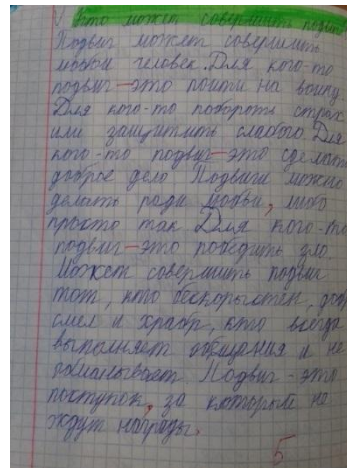 Кто может совершить подвиг
Подвиг может совершить
любой человек. Для кого-то
подвиг - это пойти на войну
Для кого-то побороть страх
или защитить слабого. Для
кого-то подвиг - это сделать
доброе дело Подвиги можно
делать ради людви, либо
просто так Для кого-то
подвиг - это победить зло
Может совершить подвиг
тот, кто бескорыстен, доб
смел и храбр, кто всегда
выполняет обещания и не
обманывает. Подвиг - это
поступок, за который не
ждут награды.
5